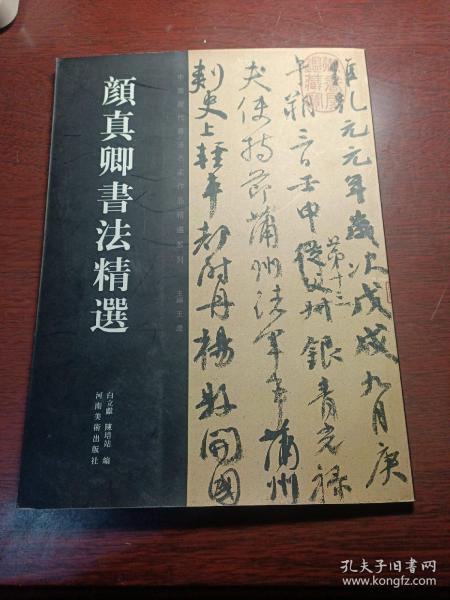 顔真卿書法精選
中國歷代書法名家作品精選系列 主編 王澄
白立獻 陳培站 編
河南美術出版社
維乾元元年歲次戊戌九月庚
午朔三日壬申第十三從父叔銀青光祿
夫使持節蒲州諸軍事蒲州
刺史上輕車都尉丹楊縣開國
孔夫子旧书网
www.kongfz.com